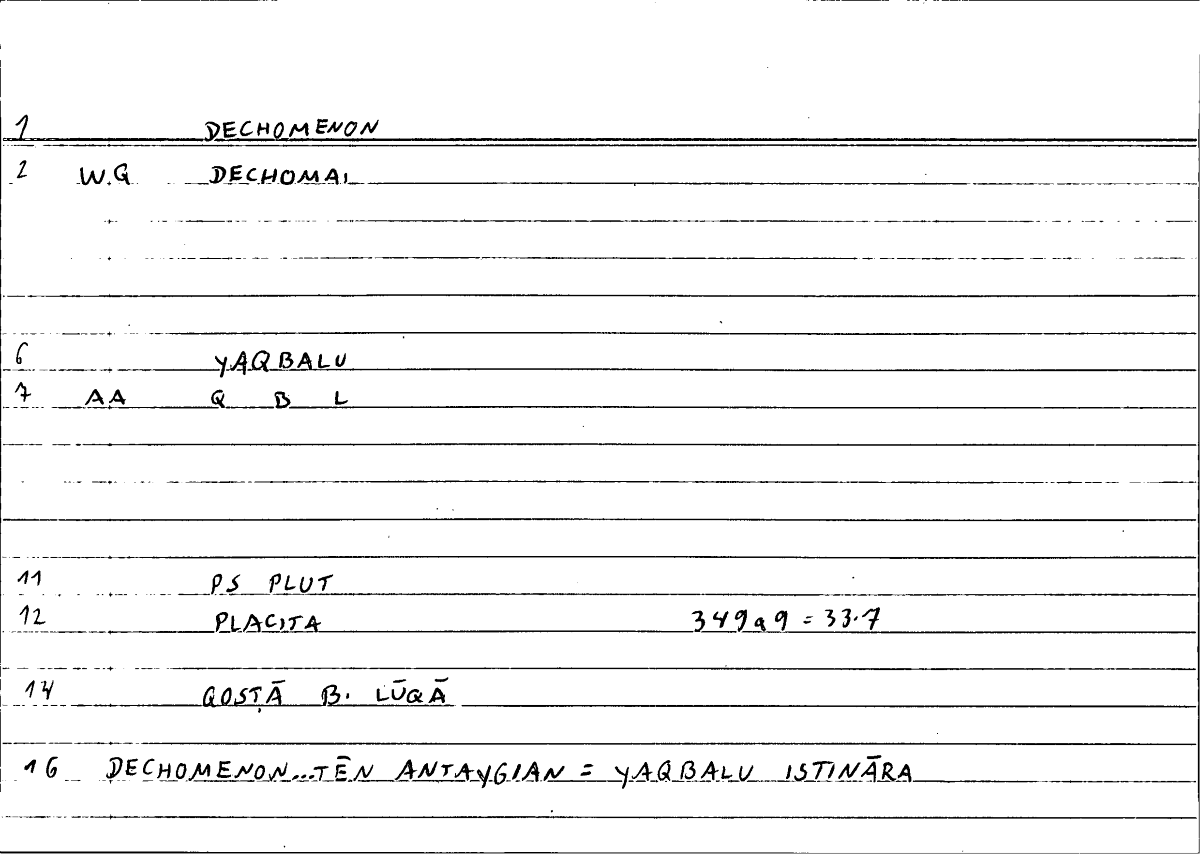 1 DECHOMENON
2 W.G DECHOMAI
6 YAQBALU
7 AA Q B L
11 PS PLUT
12 PLACITA 349a9 = 33.7
14 QOSṬĀ B. LŪQĀ
16 DECHOMENON...TĒN ANTAYGIAN = YAQBALU ISTINĀRA